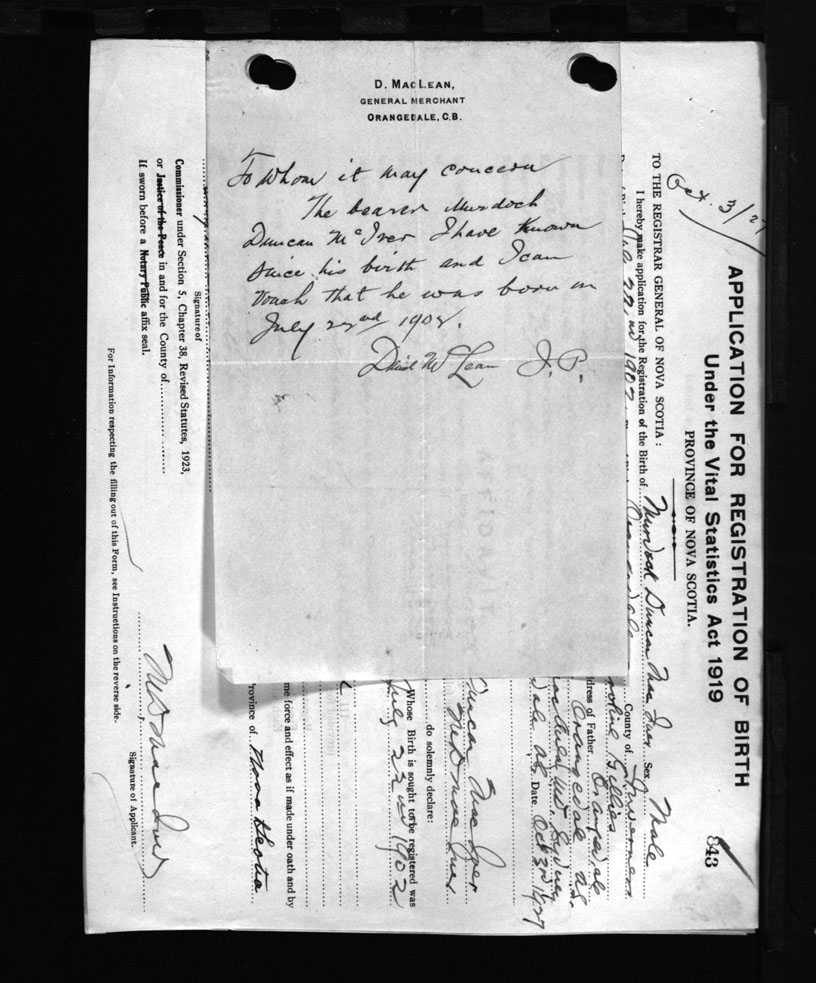 D. MACLEAN,
GENERAL MERCHANT
ORANGEDALE, C.B.
To whom it may concern
The bearer Murdoch
Duncan McIver I have known
since his birth and I can
vouch that he was born on
July 22nd 1902.
McLean J. P.
Oct. 3/27
APPLICATION FOR REGISTRATION OF BIRTH
Under the Vital Statistics Act 1919
PROVINCE OF NOVA SCOTIA.
843
TO THE REGISTRAR GENERAL OF NOVA SCOTIA:
I hereby make application for the Registration of the Birth of Murdoch Duncan Mac Iver Sex Male
1902 Orangedale County of Inverness
Gillies
dress of Father Orangedale
Orangedale
Sydney
Date Oct 3rd 1927
Duncan Mac Iver
M D Mac Iver
do solemnly declare:
Whose Birth is sought to be registered was
July 22nd 1902
me force and effect as if made under oath and by
rovince of Nova Scotia
Signature of
Commissioner under Section 5, Chapter 38, Revised Statutes, 1923,
or Justice of the Peace in and for the County of
If sworn before a Notary Public affix seal.
M D Mac Iver
Signature of Applicant.
For Information respecting the filling out of this Form, see Instructions on the reverse side.